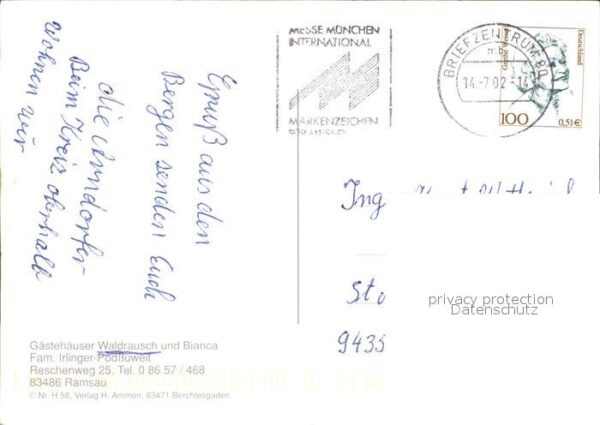 Gruß aus den
Bergen senden Euch
die Arndorfer
Beim Kreiz oberhalb
wohnen wir
MESSE MÜNCHEN
INTERNATIONAL
MARKENZEICHEN
BRIEFZENTRUM 80
mb
14.-7.02-14
Deutschland
100
0,51€
Ing
St
9435
privacy protection
Datenschutz
Gästehäuser Waldrausch und Bianca
Fam. Irlinger-Podßuweit
Reschenweg 25, Tel. 0 86 57 / 468
83486 Ramsau
© Nr. H 58, Verlag H. Ammon, 83471 Berchtesgaden